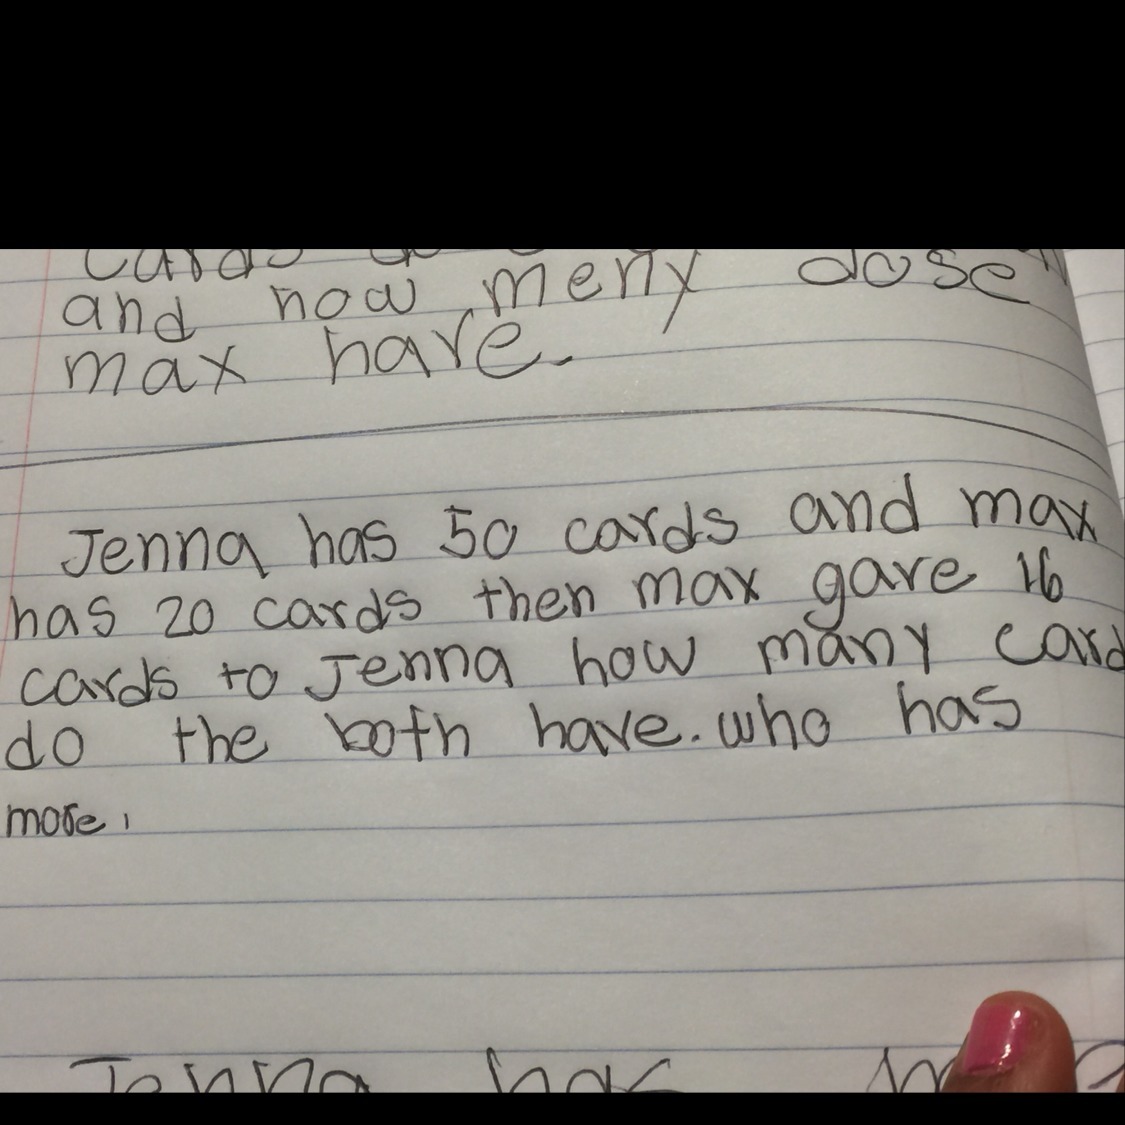 cards
and how meny dose
max have.
Jenna has 50 cards and max
has 20 cards then max gave 16
cards to Jenna how many card
do the both have. who has
more.
Jenna has